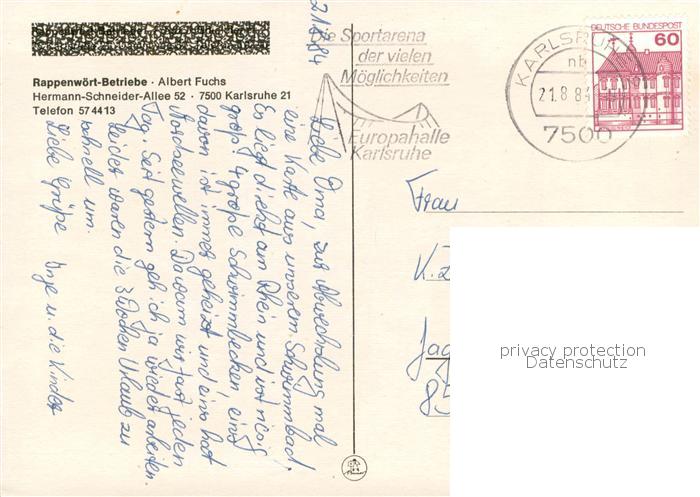 Rappenwört-Betriebe · Albert Fuchs
Hermann-Schneider-Allee 52 · 7500 Karlsruhe 21
Telefon 574413
Die Sportarena
der vielen
Möglichkeiten
Europahalle
Karlsruhe
KARLSRUHE
21.8.84
7500
DEUTSCHE BUNDESPOST
60
21.8.84
Liebe Oma, zur Abwechslung mal
eine Karte aus unserem Schwimmbad.
Es liegt direkt am Rhein und ist riesig
groß, 4 große Schwimmbecken, eins
davon ist immer geheizt und eins hat
Nordseewellen. Da waren wir fast jeden
Tag. Seit gestern geh ich ja wieder arbeiten.
Leider waren die 3 Wochen Urlaub zu
schnell um.
Liebe Grüße Inge u. die Kinder
Frau
K.
85
privacy protection
Datenschutz